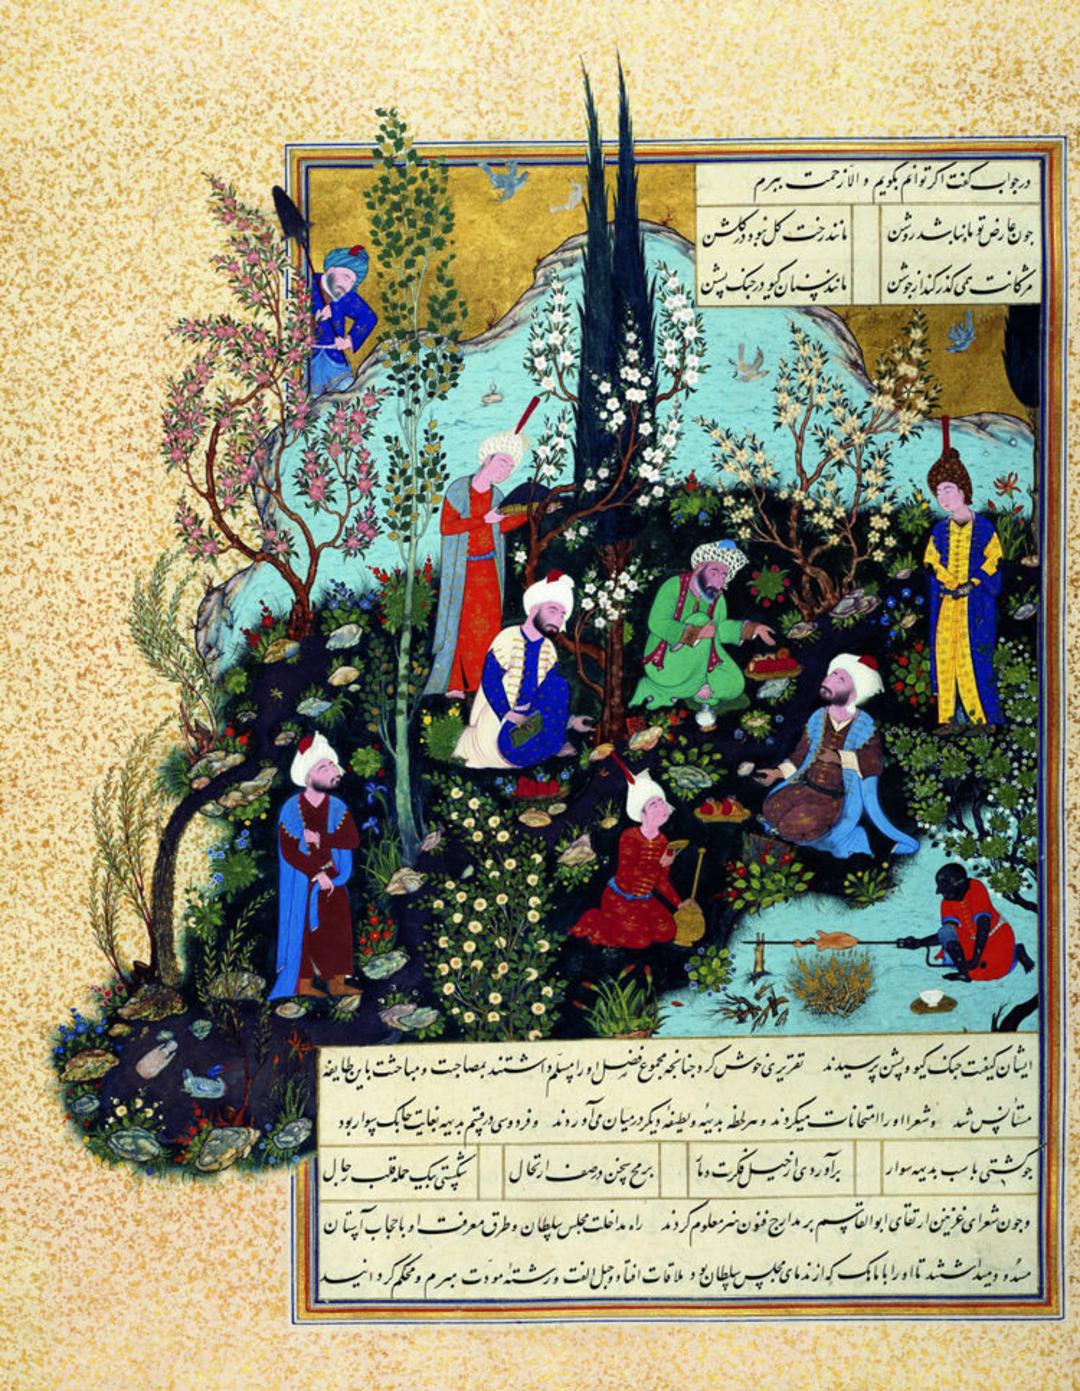 در جواب گفت اگر توانم بگویم و الا زحمت ببرم
چون عارض تو ماه نباشد روشن مانند رخت گل نبود در گلشن
مژگانت همی گذر کند از جوشن مانند سنان گیو در جنگ پشن
ایشان کیفیت جنگ گیو و پشن پرسیدند تقریری خوش کرد چنانچه مجموع فضل او را مسلم داشتند بمصاحبت و مباحثت باین طایفه
مستأنس شد و شعرا او را امتحانات میکردند و هر لحظه بدیهه و لطیفه دیگر در میان می‌آوردند و فردوسی در قسم بدیهه بغایت چابک سوار بود
چو گشتی با سب بدیهه سوار برآوردی از خیل فکرت دمار برمح سخن در صف ارتجال شکستی بیک حمله قلب رجال
و چون شعرای غزنین ارتقای ابوالقاسم بر مدارج فنون هنر معلوم کردند راه مداخلت مجلس سلطان و طرق معرفت او با حجاب آستان
مسدود میداشتند تا او را با ماهک که از ندمای مجلس سلطان بود ملاقات افتاد و حبل الفت و رشته مودت مبرم و محکم گردانید